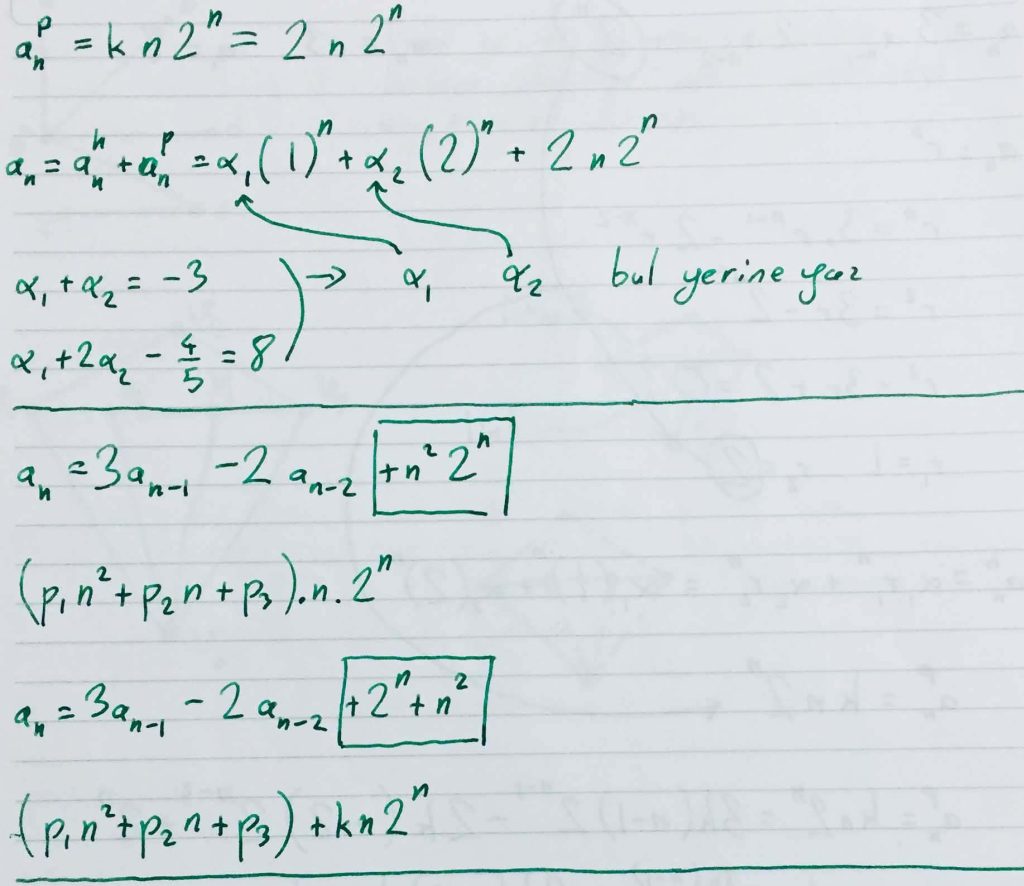 aₙᵖ = k n 2ⁿ = 2 n 2ⁿ
aₙ = aₙʰ + aₙᵖ = α₁(1)ⁿ + α₂(2)ⁿ + 2 n 2ⁿ
α₁ + α₂ = -3 → α₁ α₂ bul yerine yaz
α₁ + 2α₂ - 4/5 = 8
aₙ = 3aₙ₋₁ - 2aₙ₋₂ + n² 2ⁿ
(p₁n² + p₂n + p₃).n.2ⁿ
aₙ = 3aₙ₋₁ - 2aₙ₋₂ + 2ⁿ + n²
(p₁n² + p₂n + p₃) + kn2ⁿ